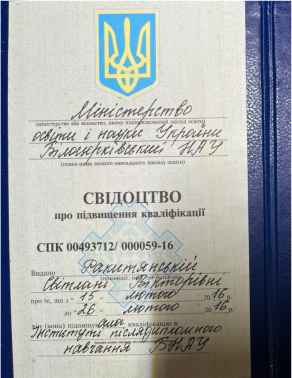 Міністерство
(міністерство або відомство, якому підпорядкований заклад освіти)
освіти і науки України
Білоцерківський НАУ
(повна назва вищого навчального закладу освіти)
СВІДОЦТВО
про підвищення кваліфікації
СПК 00493712/ 000059-16
Видано Ракитянській
Світлані Вікторівні
про те, що з « 15 » лютого 2016 р.
до « 26 » лютого 2016 р.
він (вона) підвищила кваліфікацію в
Інституті післядипломного
навчання БНАУ